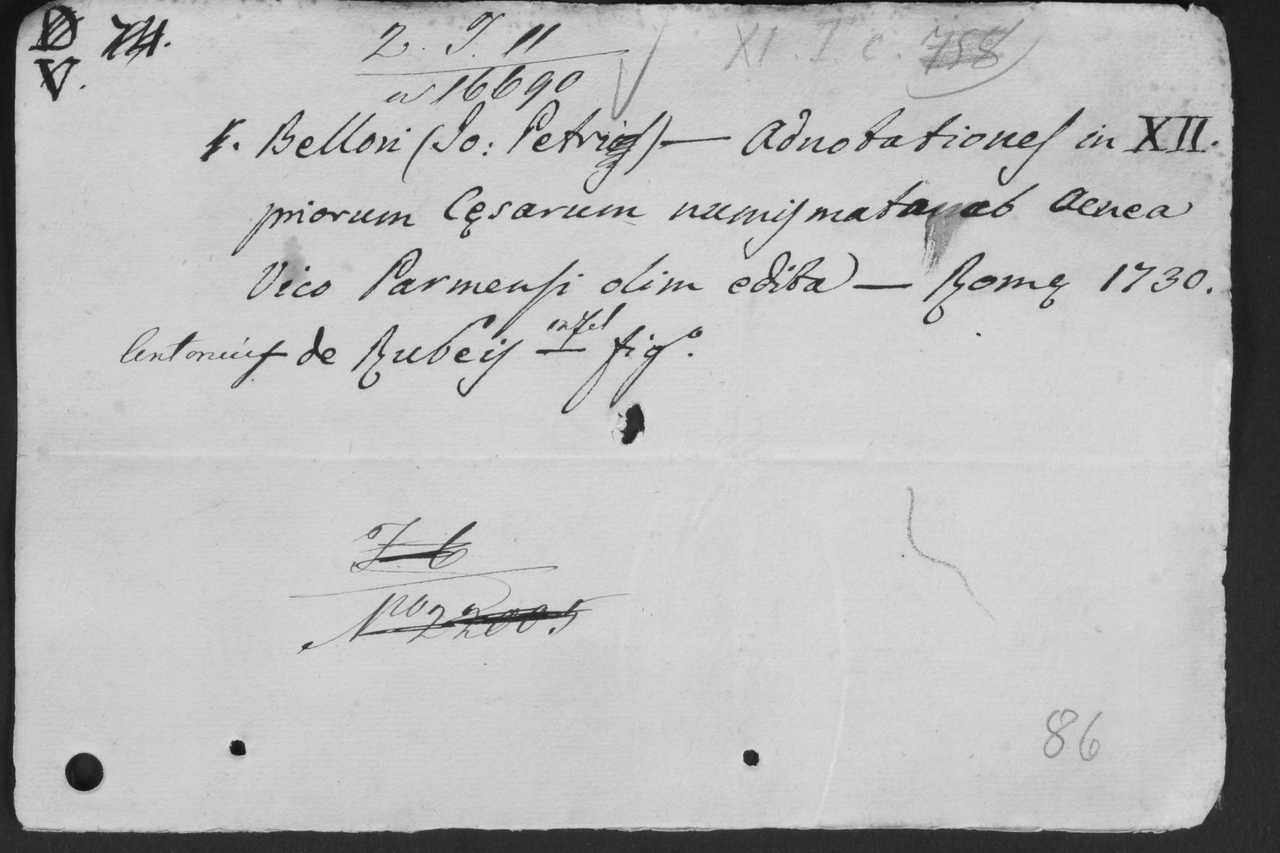 D 74.
V.
2. J. 11
n 16690
XI. I. c. 758
1. Bellori (Jo: Petrus) — Adnotationes in XII.
priorum Cęsarum numismata ab Aenea
Vico Parmensi olim edita — Romę 1730.
Antonius de Rubeis — in fol fig.
J. 6
No 22005
86